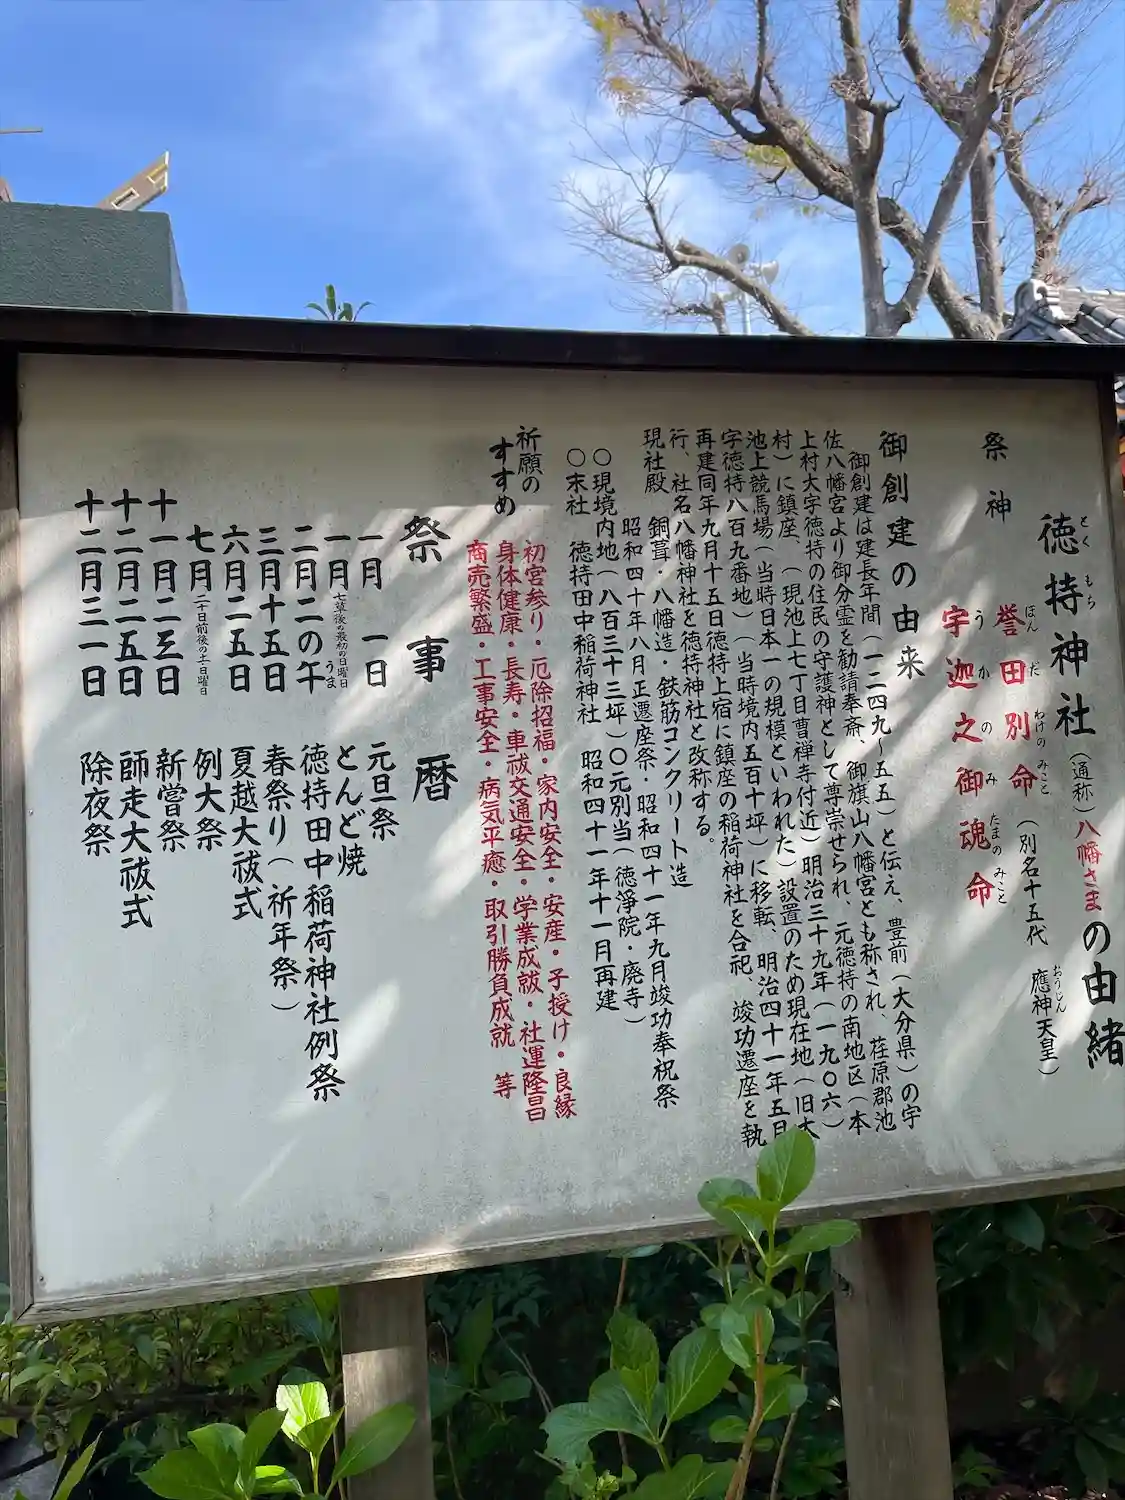 徳持神社（通称）八幡さまの由緒
とく もち
祭神
誉田別命（別名十五代 應神天皇）
ほん だ わけの みこと おうじん
宇迦之御魂命
う か の み たまの みこと
御創建の由来
御創建は建長年間（一二四九〜五五）と伝え、豊前（大分県）の宇
佐八幡宮より御分霊を勧請奉斎、御旗山八幡宮とも称され、荏原郡池
上村大字徳持の住民の守護神として尊崇せられ、元徳持の南地区（本
村）に鎮座（現池上七丁目曹禅寺付近）明治三十九年（一九〇六）
池上競馬場（当時日本一の規模といわれた）設置のため現在地（旧大
字徳持八百九番地）（当時境内五百十坪）に移転、明治四十一年五月
再建同年九月十五日徳持上宿に鎮座の稲荷神社を合祀、竣功遷座を執
行、社名八幡神社を徳持神社と改称する。
現社殿 銅葺・八幡造・鉄筋コンクリート造
昭和四十年八月正遷座祭・昭和四十一年九月竣功奉祝祭
〇現境内地（八百三十三坪）〇元別当（徳浄院・廃寺）
〇末社 徳持田中稲荷神社 昭和四十一年十一月再建
祈願の
すすめ
初宮参り・厄除招福・家内安全・安産・子授け・良縁
身体健康・長寿・車祓交通安全・学業成就・社運隆昌
商売繁盛・工事安全・病気平癒・取引勝負成就 等
祭事暦
一月 一日 元旦祭
一月 七草後の最初の日曜日 とんど焼
二月二の午 徳持田中稲荷神社例祭
うま
三月十五日 春祭り（祈年祭）
六月二五日 夏越大祓式
七月 二十日前後の土・日曜日 例大祭
十一月二三日 新嘗祭
十二月二五日 師走大祓式
十二月三一日 除夜祭